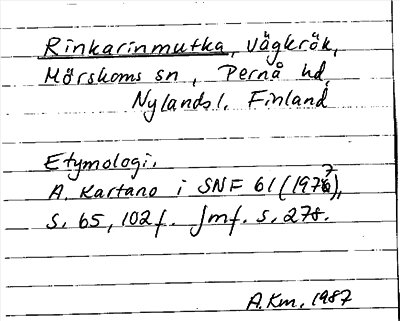 Rinkarinmutka, vägkrök,
Mörskoms sn, Pernå hd,
Nylands l. Finland
Etymologi.
A. Kartano i SNF 61 (1977),
s. 65, 102f. Jmf. s. 278.
A.Km. 1987